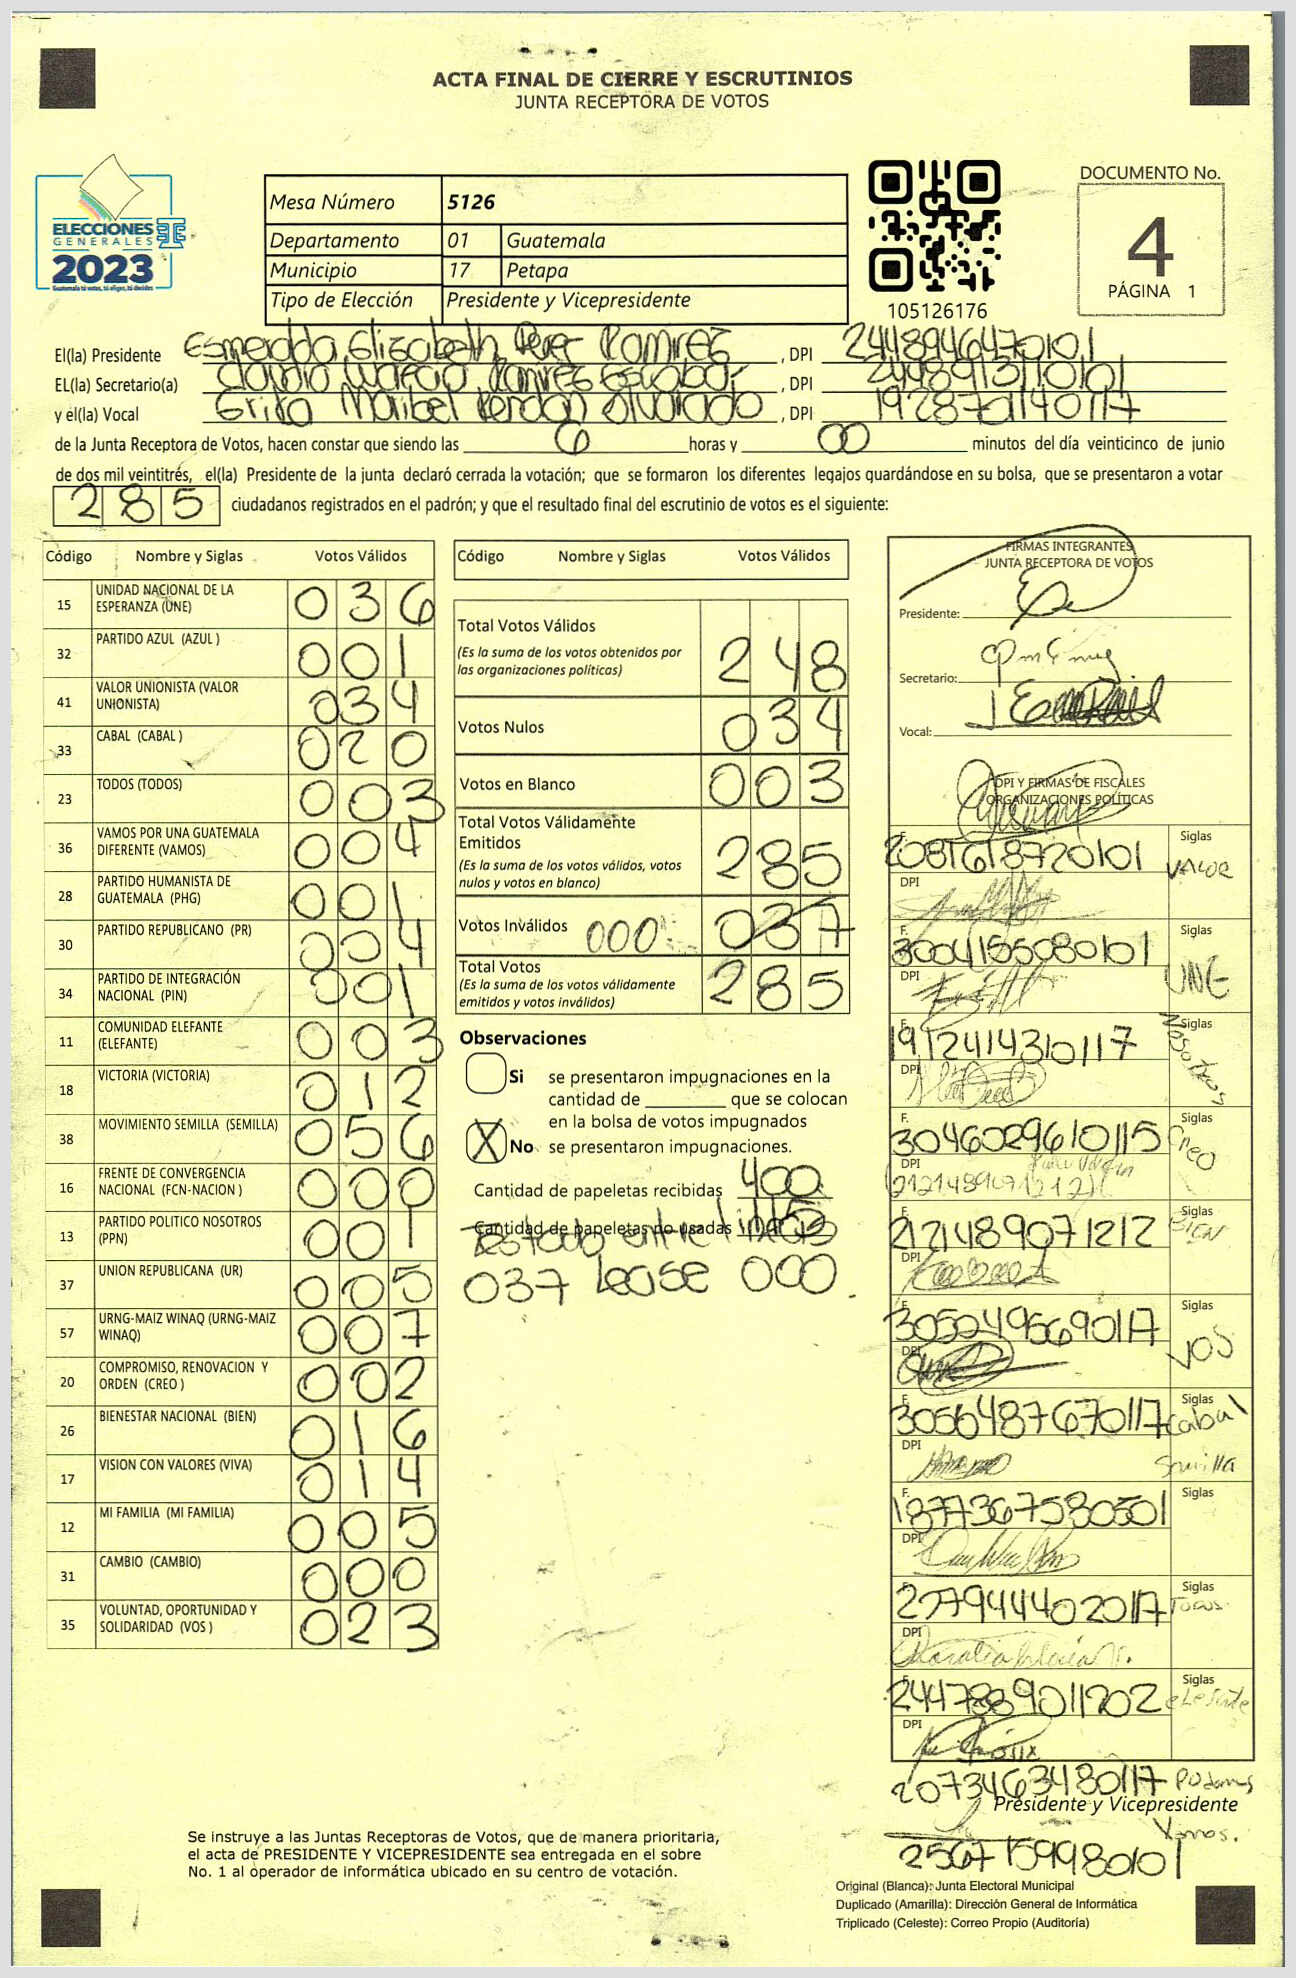 ACTA FINAL DE CIERRE Y ESCRUTINIOS
JUNTA RECEPTORA DE VOTOS
ELECCIONES
GENERALES
2023
Guatemala tú votas, tú eliges, tú decides
Mesa Número 5126
Departamento 01 Guatemala
Municipio 17 Petapa
Tipo de Elección Presidente y Vicepresidente
105126176
DOCUMENTO No.
4
PÁGINA 1
El(la) Presidente Esmeralda Elizabeth Perez Ramirez, DPI 2448946470101
EL(la) Secretario(a) Ramirez Escobar, DPI
y el(la) Vocal Maribel, DPI
de la Junta Receptora de Votos, hacen constar que siendo las 6 horas y 00 minutos del día veinticinco de junio
de dos mil veintitrés, el(la) Presidente de la junta declaró cerrada la votación; que se formaron los diferentes legajos quardándose en su bolsa, que se presentaron a votar
285 ciudadanos registrados en el padrón; y que el resultado final del escrutinio de votos es el siguiente:
Código Nombre y Siglas Votos Válidos
15 UNIDAD NACIONAL DE LA ESPERANZA (UNE) 036
32 PARTIDO AZUL (AZUL ) 001
41 VALOR UNIONISTA (VALOR UNIONISTA) 034
33 CABAL (CABAL ) 020
23 TODOS (TODOS) 003
36 VAMOS POR UNA GUATEMALA DIFERENTE (VAMOS) 004
28 PARTIDO HUMANISTA DE GUATEMALA (PHG) 001
30 PARTIDO REPUBLICANO (PR) 004
34 PARTIDO DE INTEGRACIÓN NACIONAL (PIN) 001
11 COMUNIDAD ELEFANTE (ELEFANTE) 003
18 VICTORIA (VICTORIA) 012
38 MOVIMIENTO SEMILLA (SEMILLA) 056
16 FRENTE DE CONVERGENCIA NACIONAL (FCN-NACION ) 000
13 PARTIDO POLITICO NOSOTROS (PPN) 001
37 UNION REPUBLICANA (UR) 005
57 URNG-MAIZ WINAQ (URNG-MAIZ WINAQ) 007
20 COMPROMISO, RENOVACION Y ORDEN (CREO ) 002
26 BIENESTAR NACIONAL (BIEN) 016
17 VISION CON VALORES (VIVA) 014
12 MI FAMILIA (MI FAMILIA) 005
31 CAMBIO (CAMBIO) 000
35 VOLUNTAD, OPORTUNIDAD Y SOLIDARIDAD (VOS ) 023
Código Nombre y Siglas Votos Válidos
Total Votos Válidos 248
(Es la suma de los votos obtenidos por
las organizaciones políticas)
Votos Nulos 034
Votos en Blanco 003
Total Votos Válidamente
Emitidos 285
(Es la suma de los votos válidos, votos
nulos y votos en blanco)
Votos Inválidos 000 037
Total Votos 285
(Es la suma de los votos válidamente
emitidos y votos inválidos)
Observaciones
Si se presentaron impugnaciones en la
cantidad de ________ que se colocan
en la bolsa de votos impugnados
X No se presentaron impugnaciones.
Cantidad de papeletas recibidas 400
Cantidad de papeletas no usadas 115
Testado entre lineas
037 Lease 000.
FIRMAS INTEGRANTES
JUNTA RECEPTORA DE VOTOS
Presidente:
Secretario:
Vocal:
DPI Y FIRMAS DE FISCALES
ORGANIZACIONES POLÍTICAS
F. 2081618720101 Siglas VALOR
DPI
F. 3004155080101 Siglas UNE
DPI
F. 1912414310117 Siglas Nosotros
DPI
F. 3046029610115 Siglas Creo
DPI
F. 2121489071212 Siglas BIEN
DPI
F. 3052495690117 Siglas VOS
DPI
F. 3056487670117 Siglas Cabal
DPI
Semilla
F. 1877367580501 Siglas
DPI
F. 2779444020117 Siglas Todos
DPI
F. 2447889011202 Siglas elefante
DPI
2073463480117 Podemos
Presidente y Vicepresidente
Vamos.
2567159980101
Se instruye a las Juntas Receptoras de Votos, que de manera prioritaria,
el acta de PRESIDENTE Y VICEPRESIDENTE sea entregada en el sobre
No. 1 al operador de informática ubicado en su centro de votación.
Original (Blanca): Junta Electoral Municipal
Duplicado (Amarilla): Dirección General de Informática
Triplicado (Celeste): Correo Propio (Auditoría)